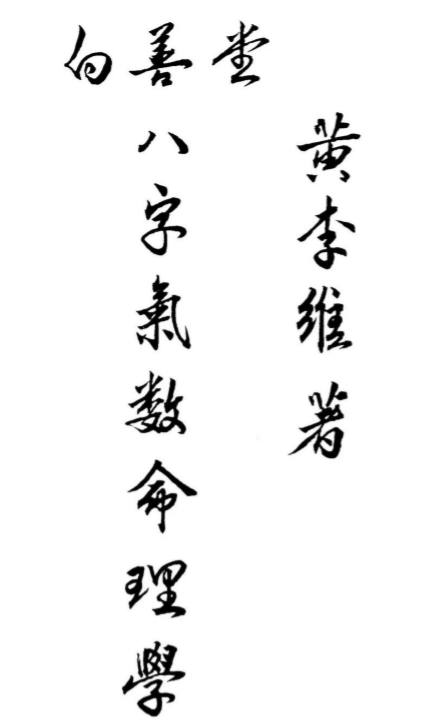 向善堂
黄李維著
八字氣数命理學